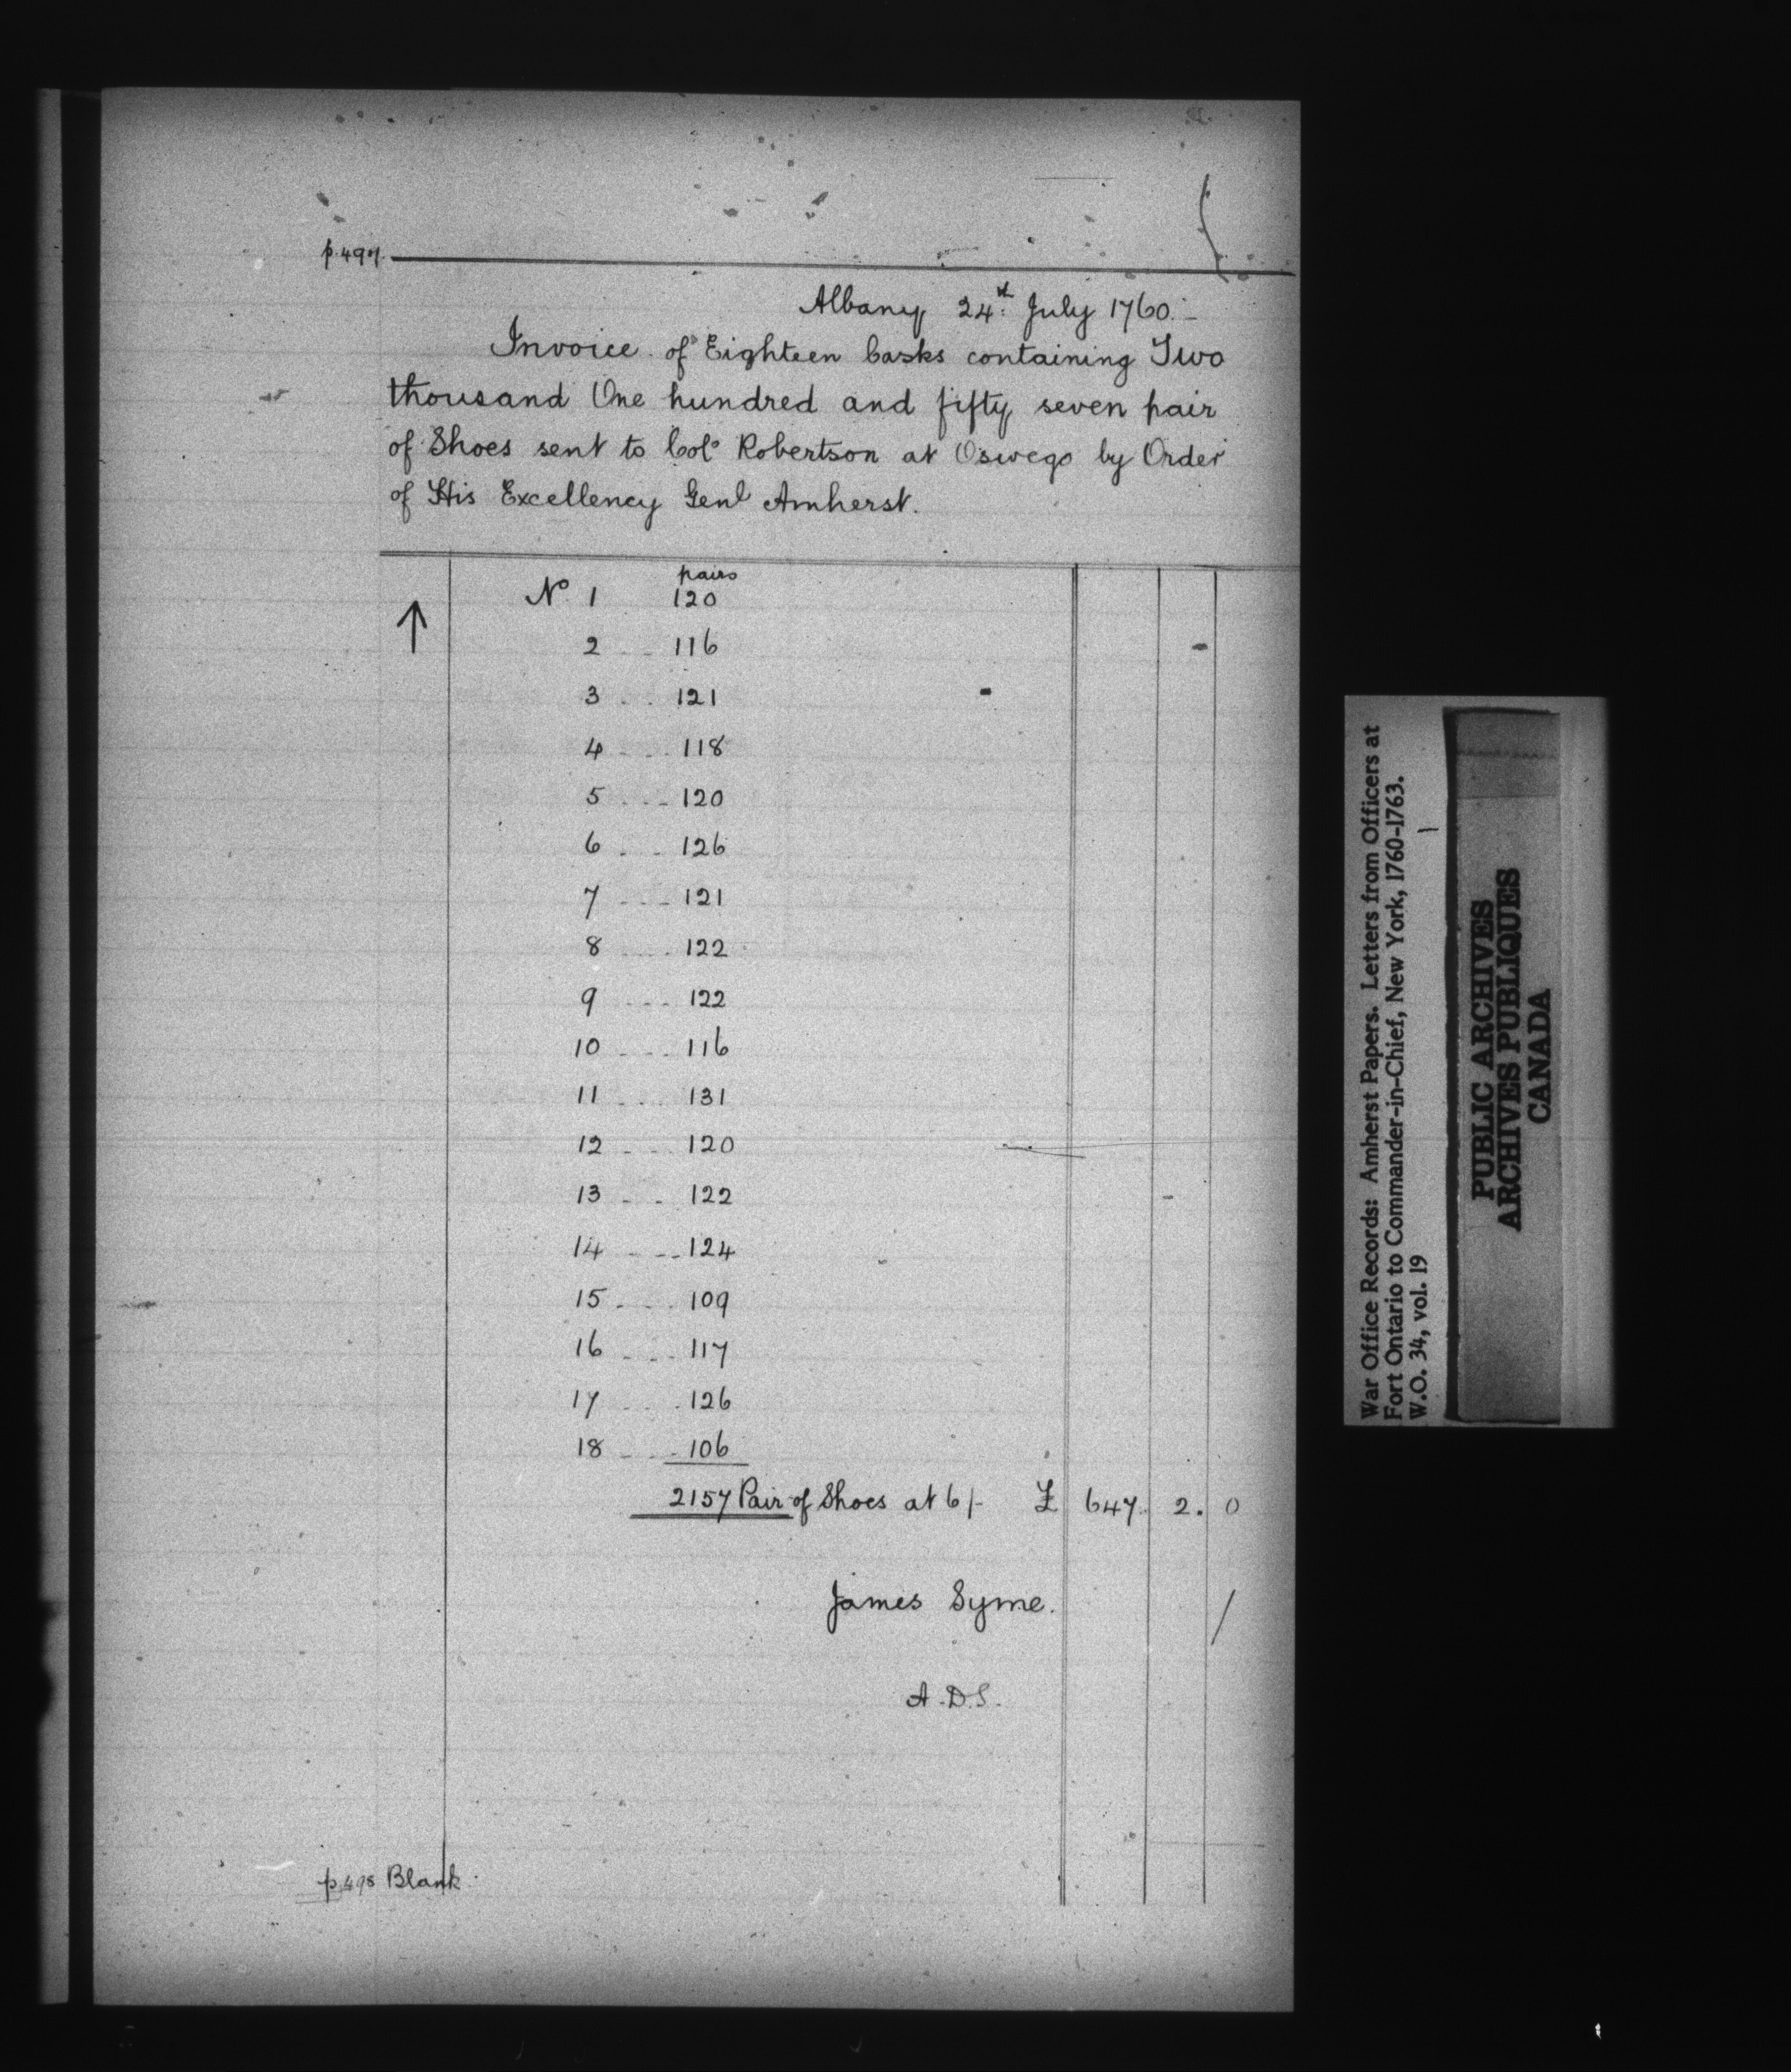 p.497.
Albany 24th July 1760.
Invoice of Eighteen Casks containing Two
thousand One hundred and fifty seven pair
of Shoes sent to Colo Robertson at Oswego by Order
of His Excellency Genl Amherst.
pairs
No 1 120
2 116
3 121
4 118
5 120
6 126
7 121
8 122
9 122
10 116
11 131
12 120
13 122
14 124
15 109
16 117
17 126
18 106
2157 Pair of Shoes at 6/- £ 647. 2. 0
James Syme.
A.D.S.
p.498 Blank.
War Office Records: Amherst Papers. Letters from Officers at
Fort Ontario to Commander-in-Chief, New York, 1760-1763.
W.O. 34, vol. 19
PUBLIC ARCHIVES
ARCHIVES PUBLIQUES
CANADA